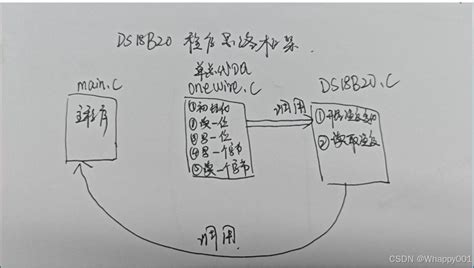 DS18B20 程序思路框架.
main.c
主程序
单总线
onewire.c
①初始化
②读一位
③写一位
④写一个字节
⑤读一个字节
调用
DS18B20.c
①开始温度变换
②读取温度
调用
CSDN @Whappy001